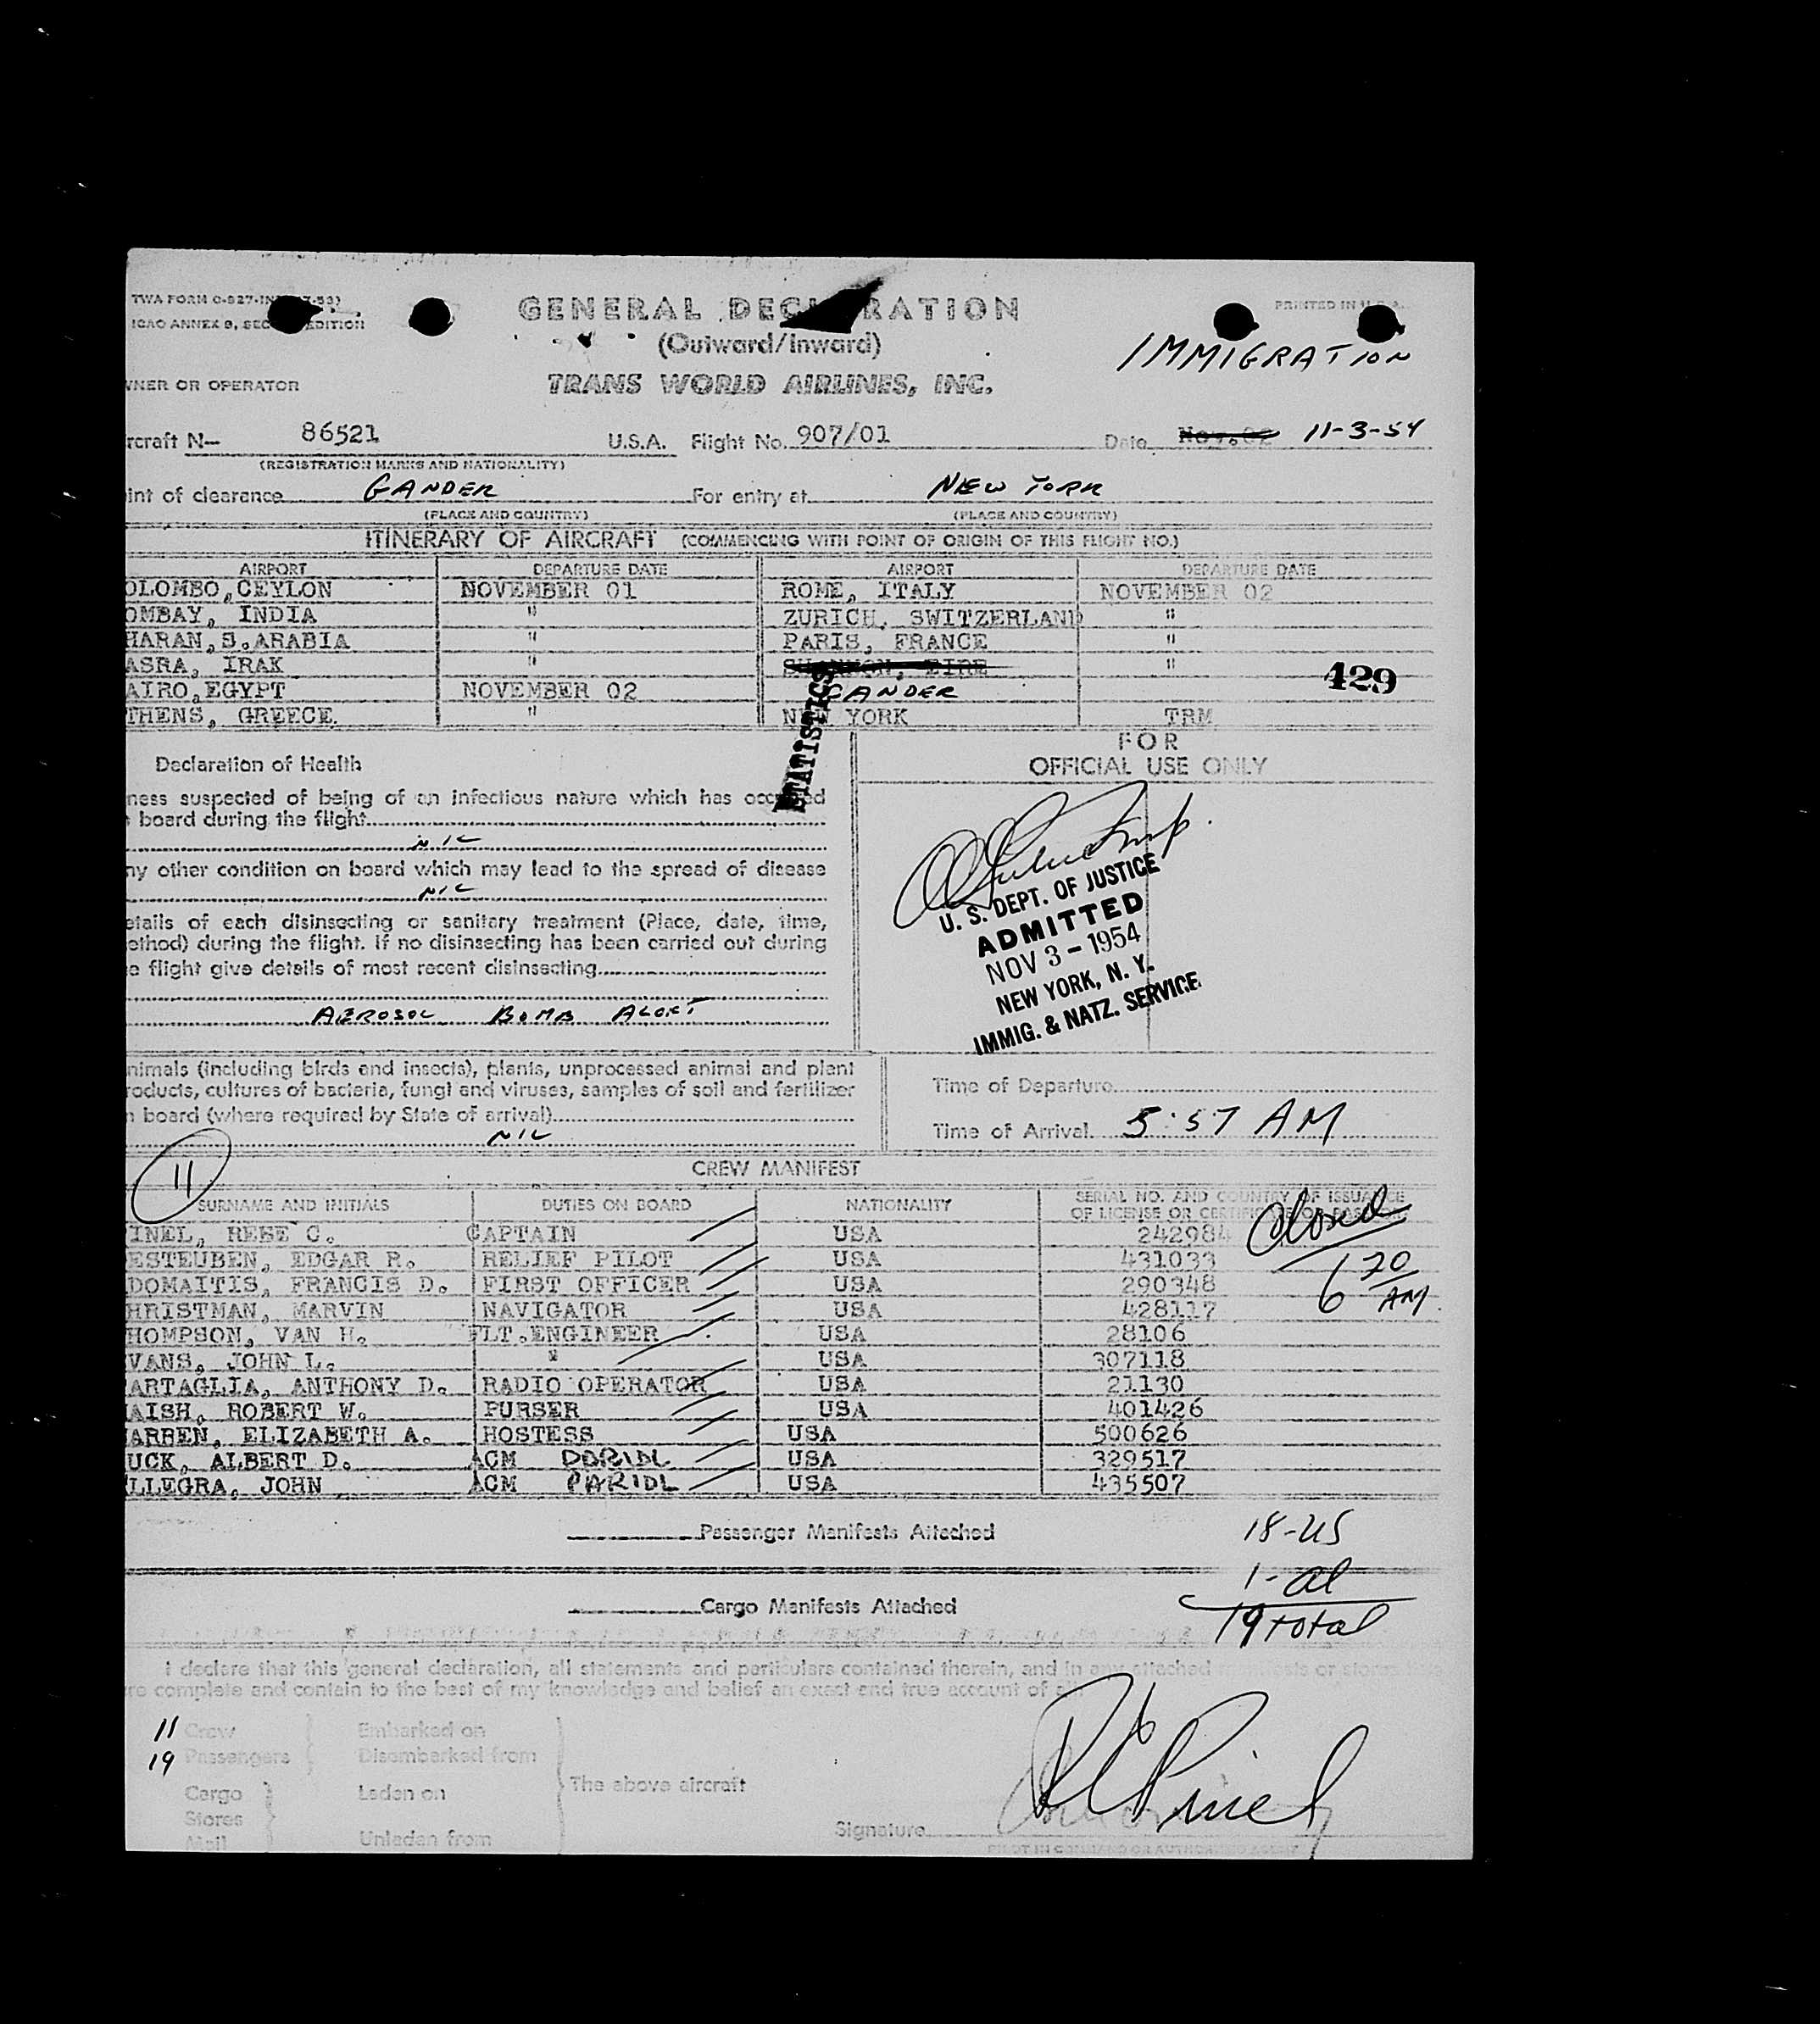 TWA FORM O-827-IN
GENERAL DEC RATION
PRINTED IN U.S.A.
ICAO ANNEX 9, SEC EDITION
(Outward/Inward)
IMMIGRATION
WNER OR OPERATOR TRANS WORLD AIRLINES, INC.
rcraft N— 86521 U.S.A. Flight No. 907/01 Date Nov.02 11-3-54
(REGISTRATION MARKS AND NATIONALITY)
int of clearance GANDER For entry at NEW YORK
(PLACE AND COUNTRY) (PLACE AND COUNTRY)
ITINERARY OF AIRCRAFT (COMMENCING WITH POINT OF ORIGIN OF THIS FLIGHT NO.)
AIRPORT DEPARTURE DATE AIRPORT DEPARTURE DATE
OLOMBO,CEYLON NOVEMBER 01 ROME, ITALY NOVEMBER 02
OMBAY, INDIA " ZURICH, SWITZERLAND "
HARAN,S.ARABIA " PARIS, FRANCE "
ASRA, IRAK " SHANNON, EIRE "
429
AIRO,EGYPT NOVEMBER 02 GANDER
THENS, GREECE. " NEW YORK TRM
STATISTICS
FOR
OFFICIAL USE ONLY
Declaration of Health
ness suspected of being of an infectious nature which has occurred
board during the flight
NIL
ny other condition on board which may lead to the spread of disease
NIL
etails of each disinsecting or sanitary treatment (Place, date, time,
ethod) during the flight. If no disinsecting has been carried out during
e flight give details of most recent disinsecting
AEROSOL BOMB ALOFT
U. S. DEPT. OF JUSTICE
ADMITTED
NOV 3 - 1954
NEW YORK, N. Y.
IMMIG. & NATZ. SERVICE
nimals (including birds and insects), plants, unprocessed animal and plant
roducts, cultures of bacteria, fungi and viruses, samples of soil and fertilizer
n board (where required by State of arrival)
NIL
Time of Departure
Time of Arrival 5:57 AM
11
CREW MANIFEST
SURNAME AND INITIALS DUTIES ON BOARD NATIONALITY SERIAL NO. AND COUNTRY OF ISSUANCE
OF LICENSE OR CERTIFICATE OR PASSPORT
Closed
6 20 AM
INEL, RENE C. CAPTAIN USA 242984
ESTEUBEN, EDGAR R. RELIEF PILOT USA 431033
DOMAITIS, FRANCIS D. FIRST OFFICER USA 290348
HRISTMAN, MARVIN NAVIGATOR USA 428117
HOMPSON, VAN H. FLT.ENGINEER USA 28106
VANS, JOHN L. " USA 307118
ARTAGLIA, ANTHONY D. RADIO OPERATOR USA 21130
AISH, ROBERT W. PURSER USA 401426
ARREN, ELIZABETH A. HOSTESS USA 500626
UCK, ALBERT D. ACM PARIDL USA 329517
LLEGRA, JOHN ACM PARIDL USA 435507
Passenger Manifests Attached
18-US
1-al
Cargo Manifests Attached
19 total
I declare that this general declaration, all statements and particulars contained therein, and in any attached
re complete and contain to the best of my knowledge and belief an exact and true account of all
11 Crew Embarked on
19 Passengers Disembarked from
Cargo Laden on The above aircraft
Stores
Mail Unladen from
Signature R C Pinel
PILOT IN COMMAND OR AUTHORIZED AGENT